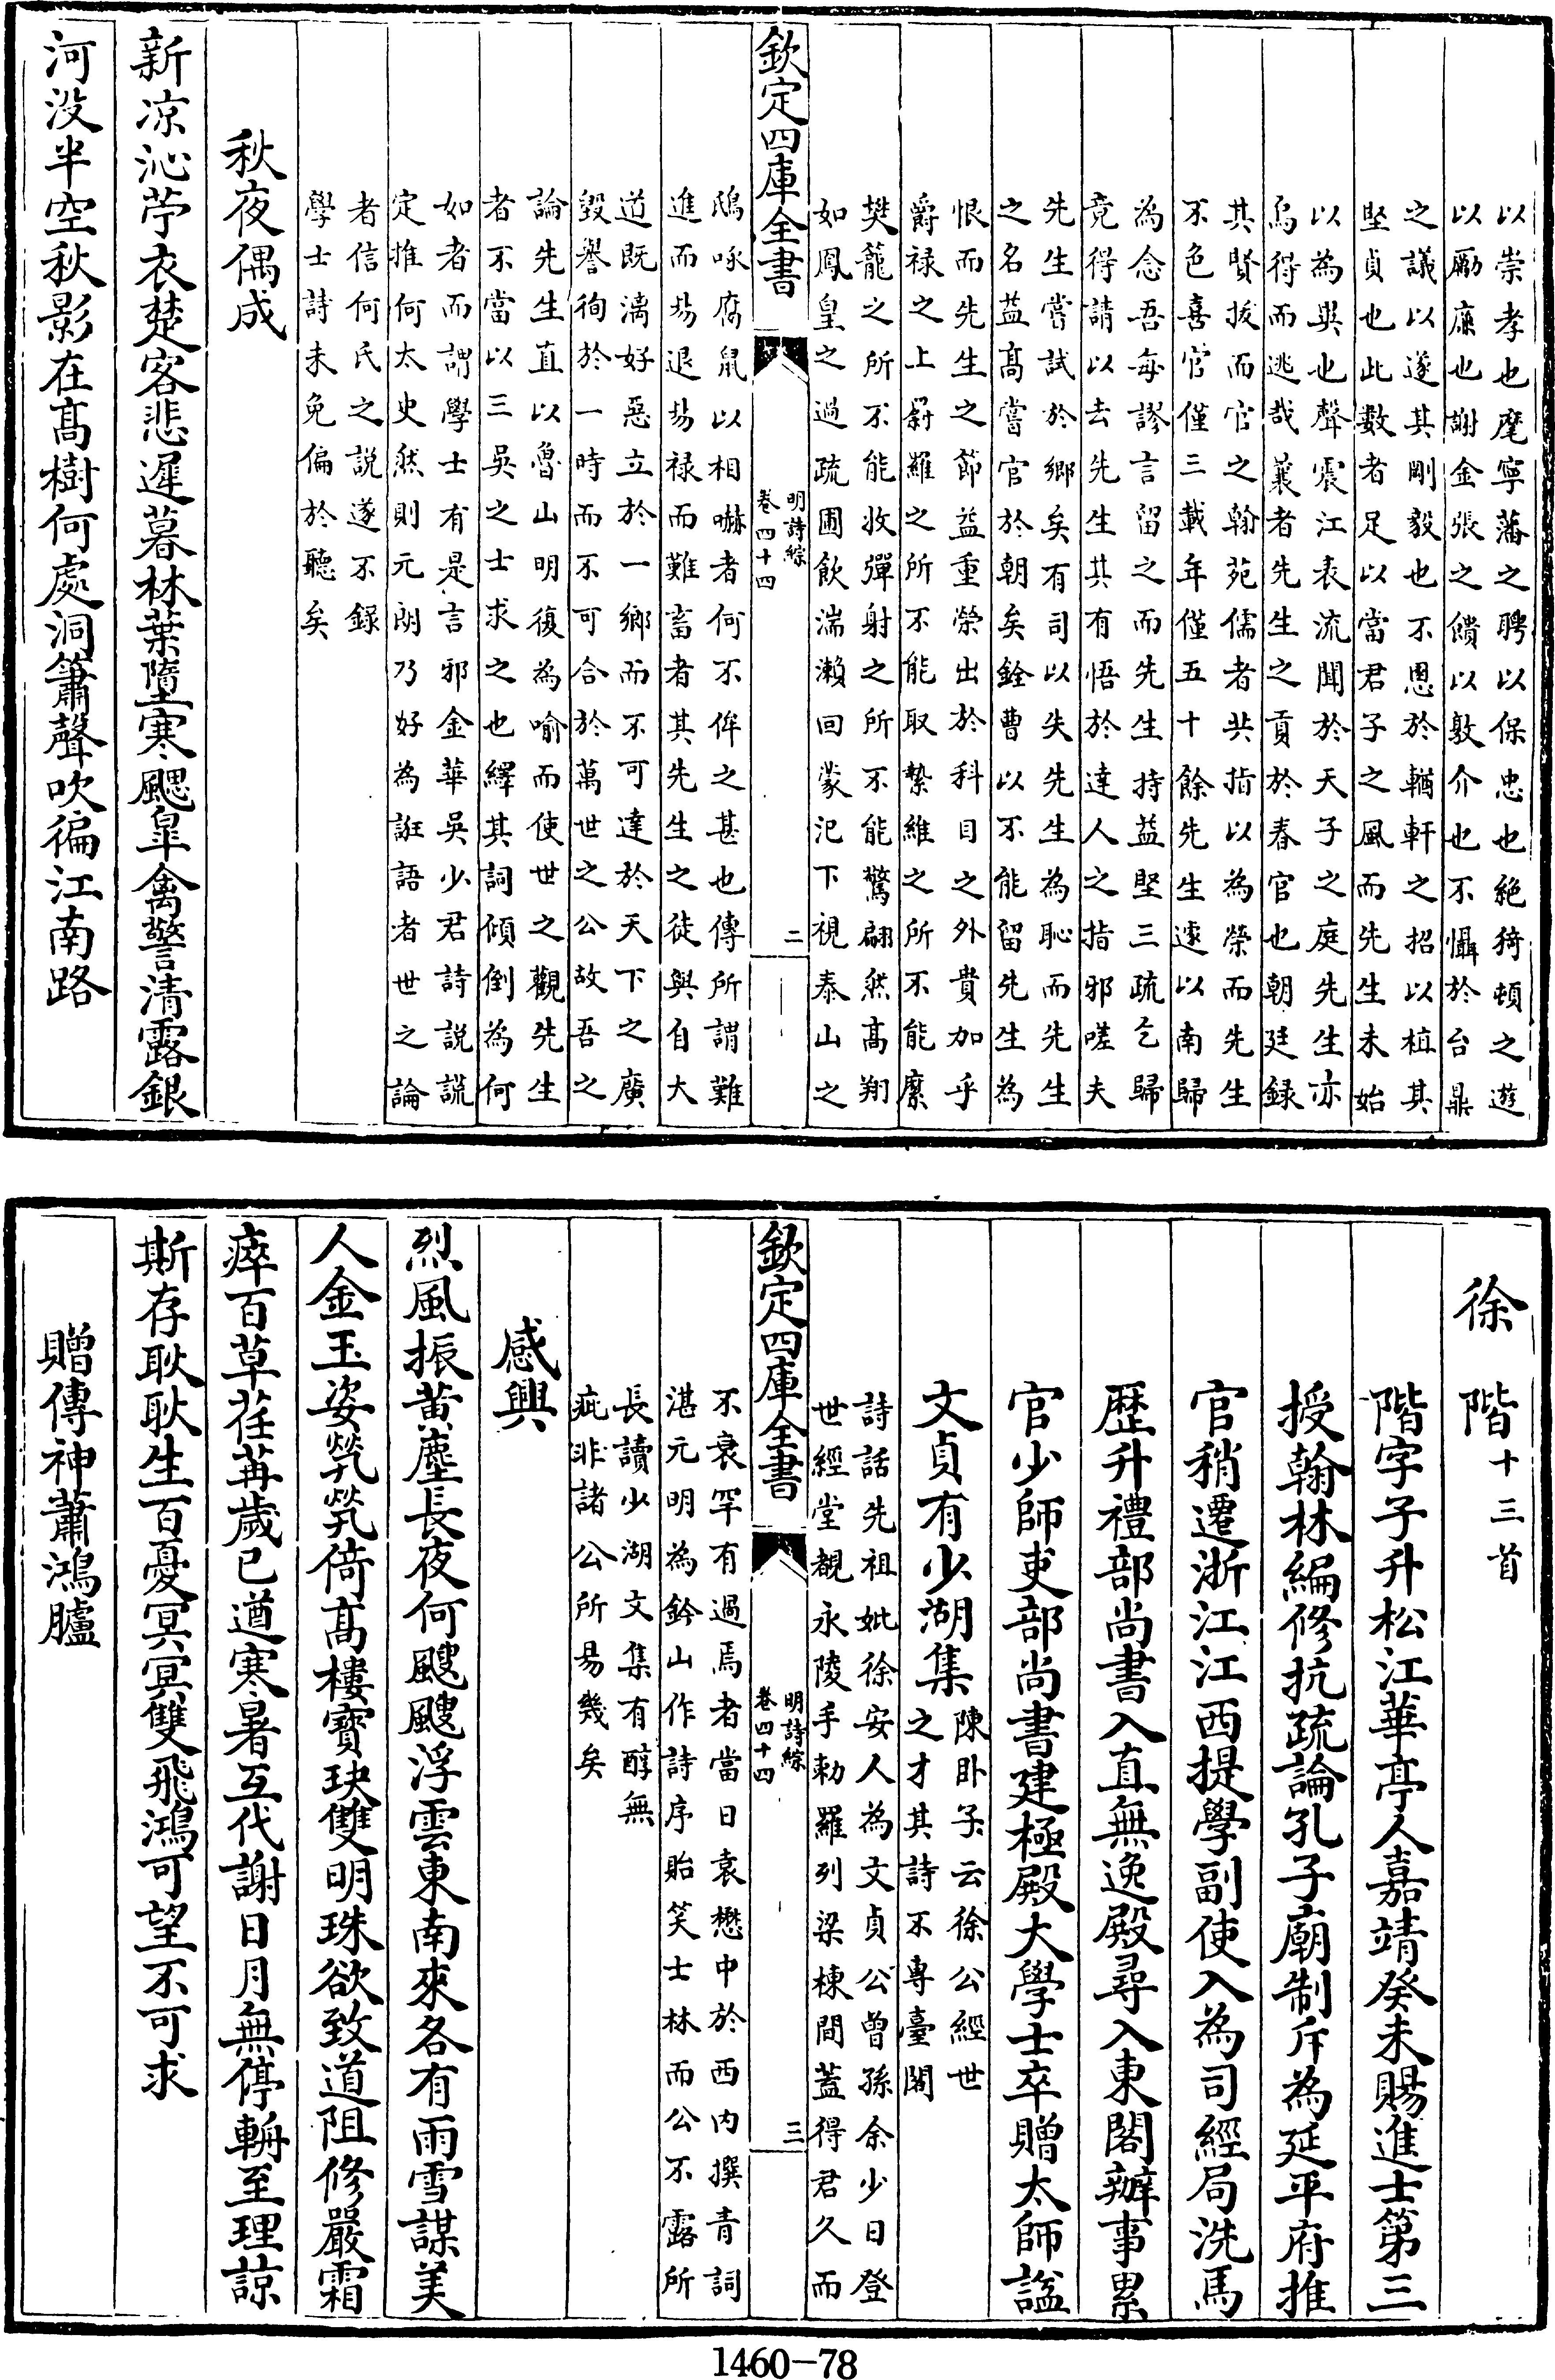 以崇孝也麾寧藩之聘以保忠也絶猗頓之遊
以勵廉也謝金張之饋以敦介也不懾於台鼎
之議以遂其剛毅也不恩於輶軒之招以植其
堅貞也此數者足以當君子之風而先生未始
以為異也聲震江表流聞於天子之庭先生亦
烏得而逃哉蘘者先生之貢於春官也朝廷録
其賢拔而官之翰苑儒者共指以為榮而先生
不色喜官僅三載年僅五十餘先生遽以南歸
為念吾每謬言留之而先生持益堅三疏乞歸
竟得請以去先生其有悟於達人之指邪嗟夫
先生嘗試於鄉矣有司以失先生為恥而先生
之名益髙嘗官於朝矣銓曹以不能留先生為
恨而先生之節益重榮出於科目之外貴加乎
爵禄之上罻羅之所不能取縶維之所不能縻
樊籠之所不能收彈射之所不能驚翩然髙翔
如鳳皇之過疏圃飲湍瀨回蒙汜下視泰山之
欽定四庫全書
明詩綜
卷四十四
二
鴟啄腐鼠以相嚇者何不侔之甚也傳所謂難
進而易退易禄而難畜者其先生之徒與自大
道既漓好惡立於一鄉而不可達於天下之廣
毀譽徇於一時而不可合於萬世之公故吾之
論先生直以魯山明復為喻而使世之觀先生
者不當以三吳之士求之也繹其詞傾倒為何
如者而謂學士有是言邪金華吳少君詩説謊
定推何太史然則元朗乃好為誑語者世之論
者信何氏之説遂不錄
學士詩未免偏於聽矣
秋夜偶成
新凉沁苧衣楚客悲遲暮林葉墮寒颸皐禽警清露銀
河没半空秋影在髙樹何處洞簫聲吹徧江南路
徐階十三首
階字子升松江華亭人嘉靖癸未賜進士第三
授翰林編修抗疏論孔子廟制斥為延平府推
官稍遷浙江江西提學副使入為司經局洗馬
歴升禮部尚書入直無逸殿尋入東閣辦事累
官少師吏部尚書建極殿大學士卒贈太師諡
文貞有少湖集
陳卧子云徐公經世
之才其詩不專臺閣
詩話先祖妣徐安人為文貞公曾孫余少日登
世經堂覩永陵手勅羅列梁棟間蓋得君久而
欽定四庫全書
明詩綜
卷四十四
三
不衰罕有過焉者當日袁懋中於西内撰青詞
湛元明為鈐山作詩序貽笑士林而公不露所
長讀少湖文集有醇無
疵非諸公所易幾矣
感興
烈風振黄塵長夜何颼颼浮雲東南來各有雨雪謀美
人金玉姿煢煢倚髙樓寳玦雙明珠欲致道阻修嚴霜
瘁百草荏苒歲已遒寒暑互代謝日月無停輈至理諒
斯存耿耿生百憂冥冥雙飛鴻可望不可求
贈傳神蕭鴻臚
1460-78